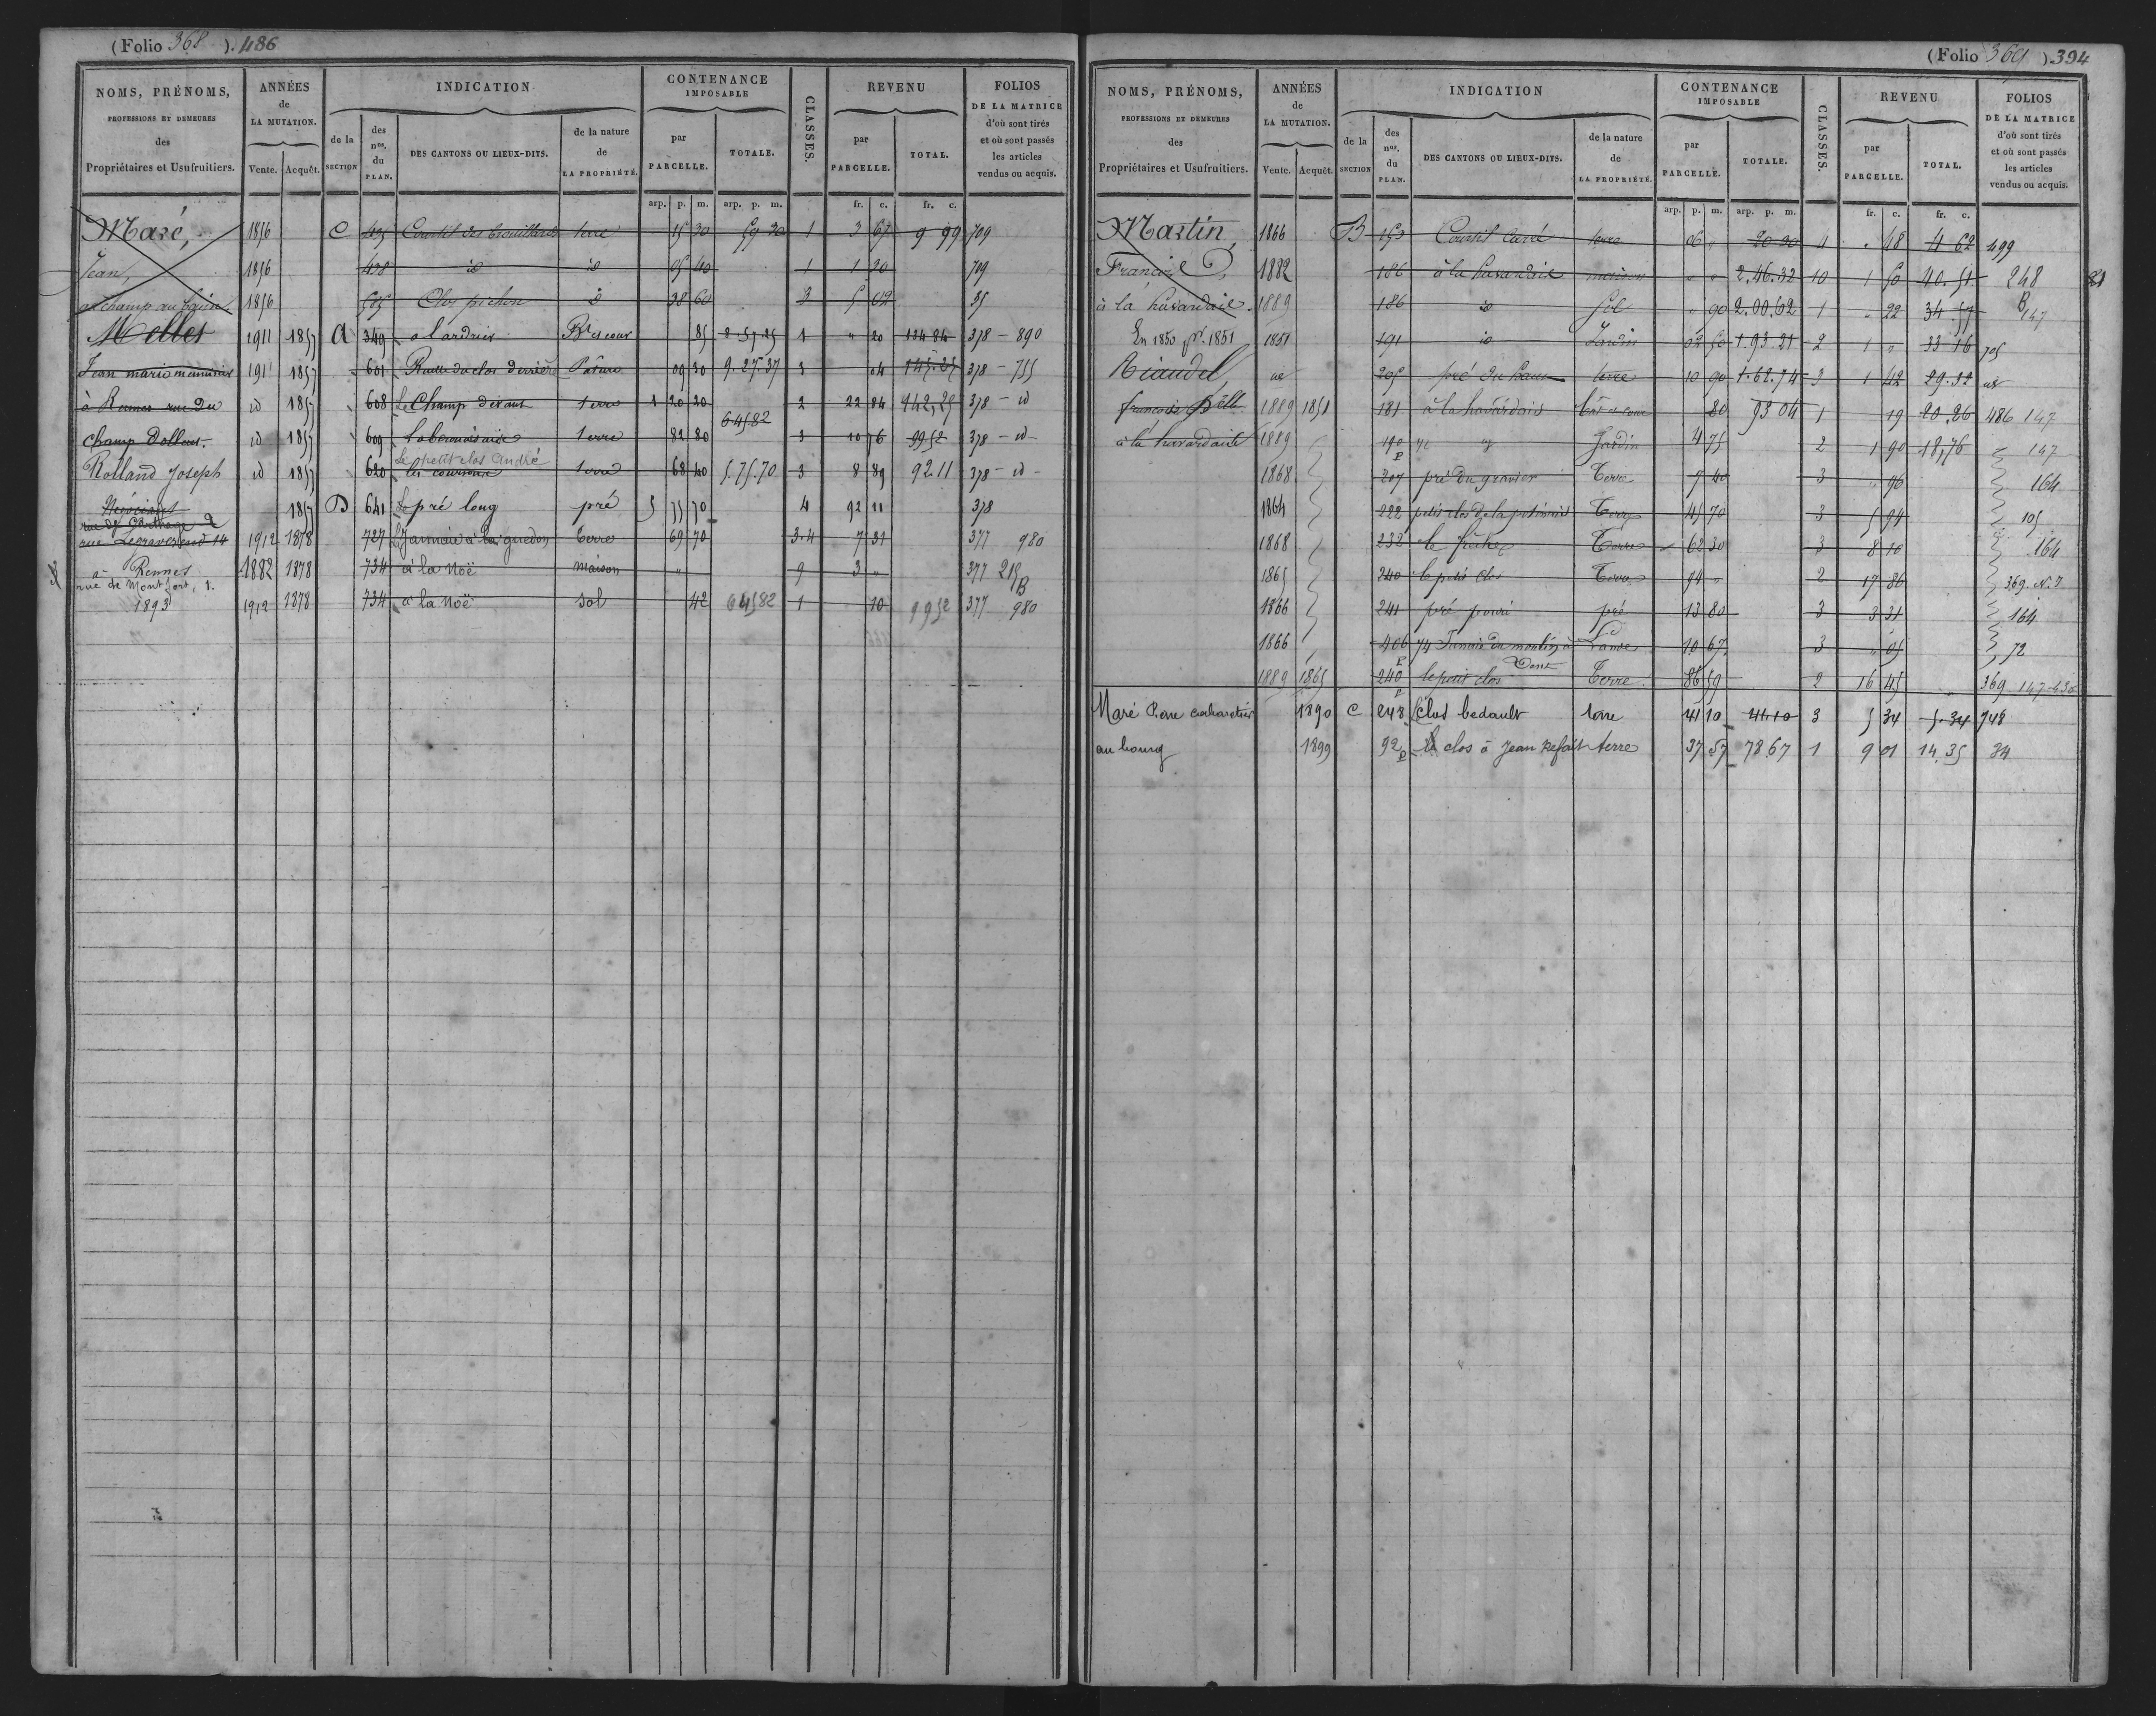 (Folio 368 ). 486
NOMS, PRÉNOMS,
PROFESSIONS ET DEMEURES
des
Propriétaires et Usufruitiers.
ANNÉES
de
LA MUTATION.
Vente. Acquêt.
INDICATION
de la
SECTION
des
nos.
du
PLAN.
DES CANTONS OU LIEUX-DITS.
de la nature
de
LA PROPRIÉTÉ.
CONTENANCE
IMPOSABLE
par
PARCELLE.
TOTALE.
CLASSES.
REVENU
par
PARCELLE.
TOTAL.
FOLIOS
DE LA MATRICE
d'où sont tirés
et où sont passés
les articles
vendus ou acquis.
arp. p. m. arp. p. m. fr. c. fr. c.
Maré, 1856 C Courtil des terre 15 30 59 30 1 3 67 9 99 709
Jean, 1856 438 id id 05 40 1 1 30 709
au champ au 1856 505 Clos pichon id 38 60 3 5 02 35
Melles 1911 1857 A 349 a lardries Bt et cour 85 2.57.25 1 " 20 134 84 378 - 890
Jean marie menuisier 1911 1857 601 Ruelle du clos derrière Pâture 09 30 9.25.37 3 04 378 - 755
à Rennes rue du id 1857 608 Le Champ devant terre 1 20 20 2 22 84 142,25 378 - id
64582
champ Dollent. id 1857 609 terre 82 80 3 10 76 99 52 378 - id -
Le petit clos André
Rolland Joseph id 1857 620 terre 68 40 5.75.70 3 8 89 92.11 378 - id -
Négociant 1857 D 641 Le pré long pré 5 75 70 4 92 11 378
rue de Carthage 2
rue Legraverend 14 1912 1878 727 terre 69 70 3.4 7 31 377 980
à Rennes 1882 1878 734 à la Noë maison " 9 3 " 377 215 B
rue de Montfort, 1.
1893 1912 1878 734 à la Noë sol 42 64582 1 10 1952 377 980
(Folio 369 ). 394
NOMS, PRÉNOMS,
PROFESSIONS ET DEMEURES
des
Propriétaires et Usufruitiers.
ANNÉES
de
LA MUTATION.
Vente. Acquêt.
INDICATION
de la
SECTION
des
nos.
du
PLAN.
DES CANTONS OU LIEUX-DITS.
de la nature
de
LA PROPRIÉTÉ.
CONTENANCE
IMPOSABLE
par
PARCELLE.
TOTALE.
CLASSES.
REVENU
par
PARCELLE.
TOTAL.
FOLIOS
DE LA MATRICE
d'où sont tirés
et où sont passés
les articles
vendus ou acquis.
arp. p. m. arp. p. m. fr. c. fr. c.
Martin, 1866 B 153 Courtil Carré terre 06 " 20 90 4 " 48 4 62 499
1882 186 à la havardaie maison " " 2.46.32 10 1 50 40.51 248
à la havardaie. 1889 186 id Sol " 90 2.00.62 1 " 22 34 57 B 147
En 1850 pr. 1851 1851 191 id Jardin 02 50 1.93.21 2 1 " 33 16 705
Riaudel id 205 pré du terre 10 90 1.62.74 3 1 42 29.32 id
françoise fille 1889 1851 181 à la havardais bât et cour 80 93 04 1 19 20 26 486 147
à la havardaile 1889 190 p Jardin 4 75 2 1 90 18,76 147
1868 207 pré du gravier Terre 7 40 3 " 96 164
1864 222 petit clos de la Terre 45 70 3 5 94 105
1868 232 Terre 62 30 3 8 10 164
1865 240 le petit clos Terre 94 " 2 17 86 369. N.7
1866 241 pré pourri pré 13 80 3 3 31 164
1866 406 p du moulin à Vent Lande 10 67 3 " 05 72
1889 1865 240 p le petit clos Terre 86 59 2 16 45 369 147-430
Maré Pierre cabaretier 1890 C 248 Clos bedault terre 41 10 41.10 3 5 34 5.34 748
au bourg 1899 92 p le clos à Jean Refait terre 37 57 78.67 1 9 01 14,35 34